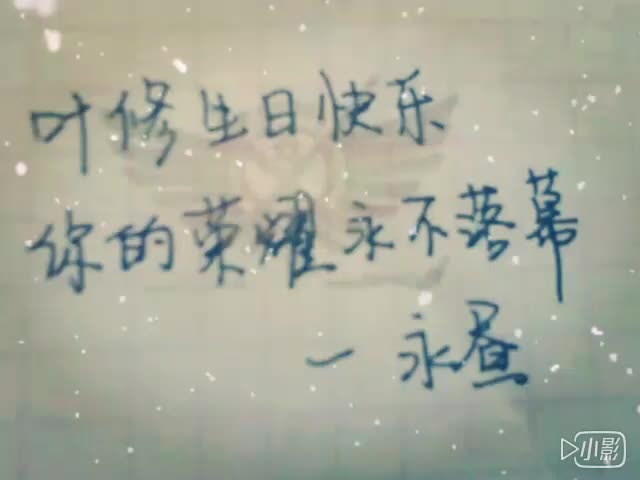 叶修生日快乐
你的荣耀永不落幕
一永昼
小影